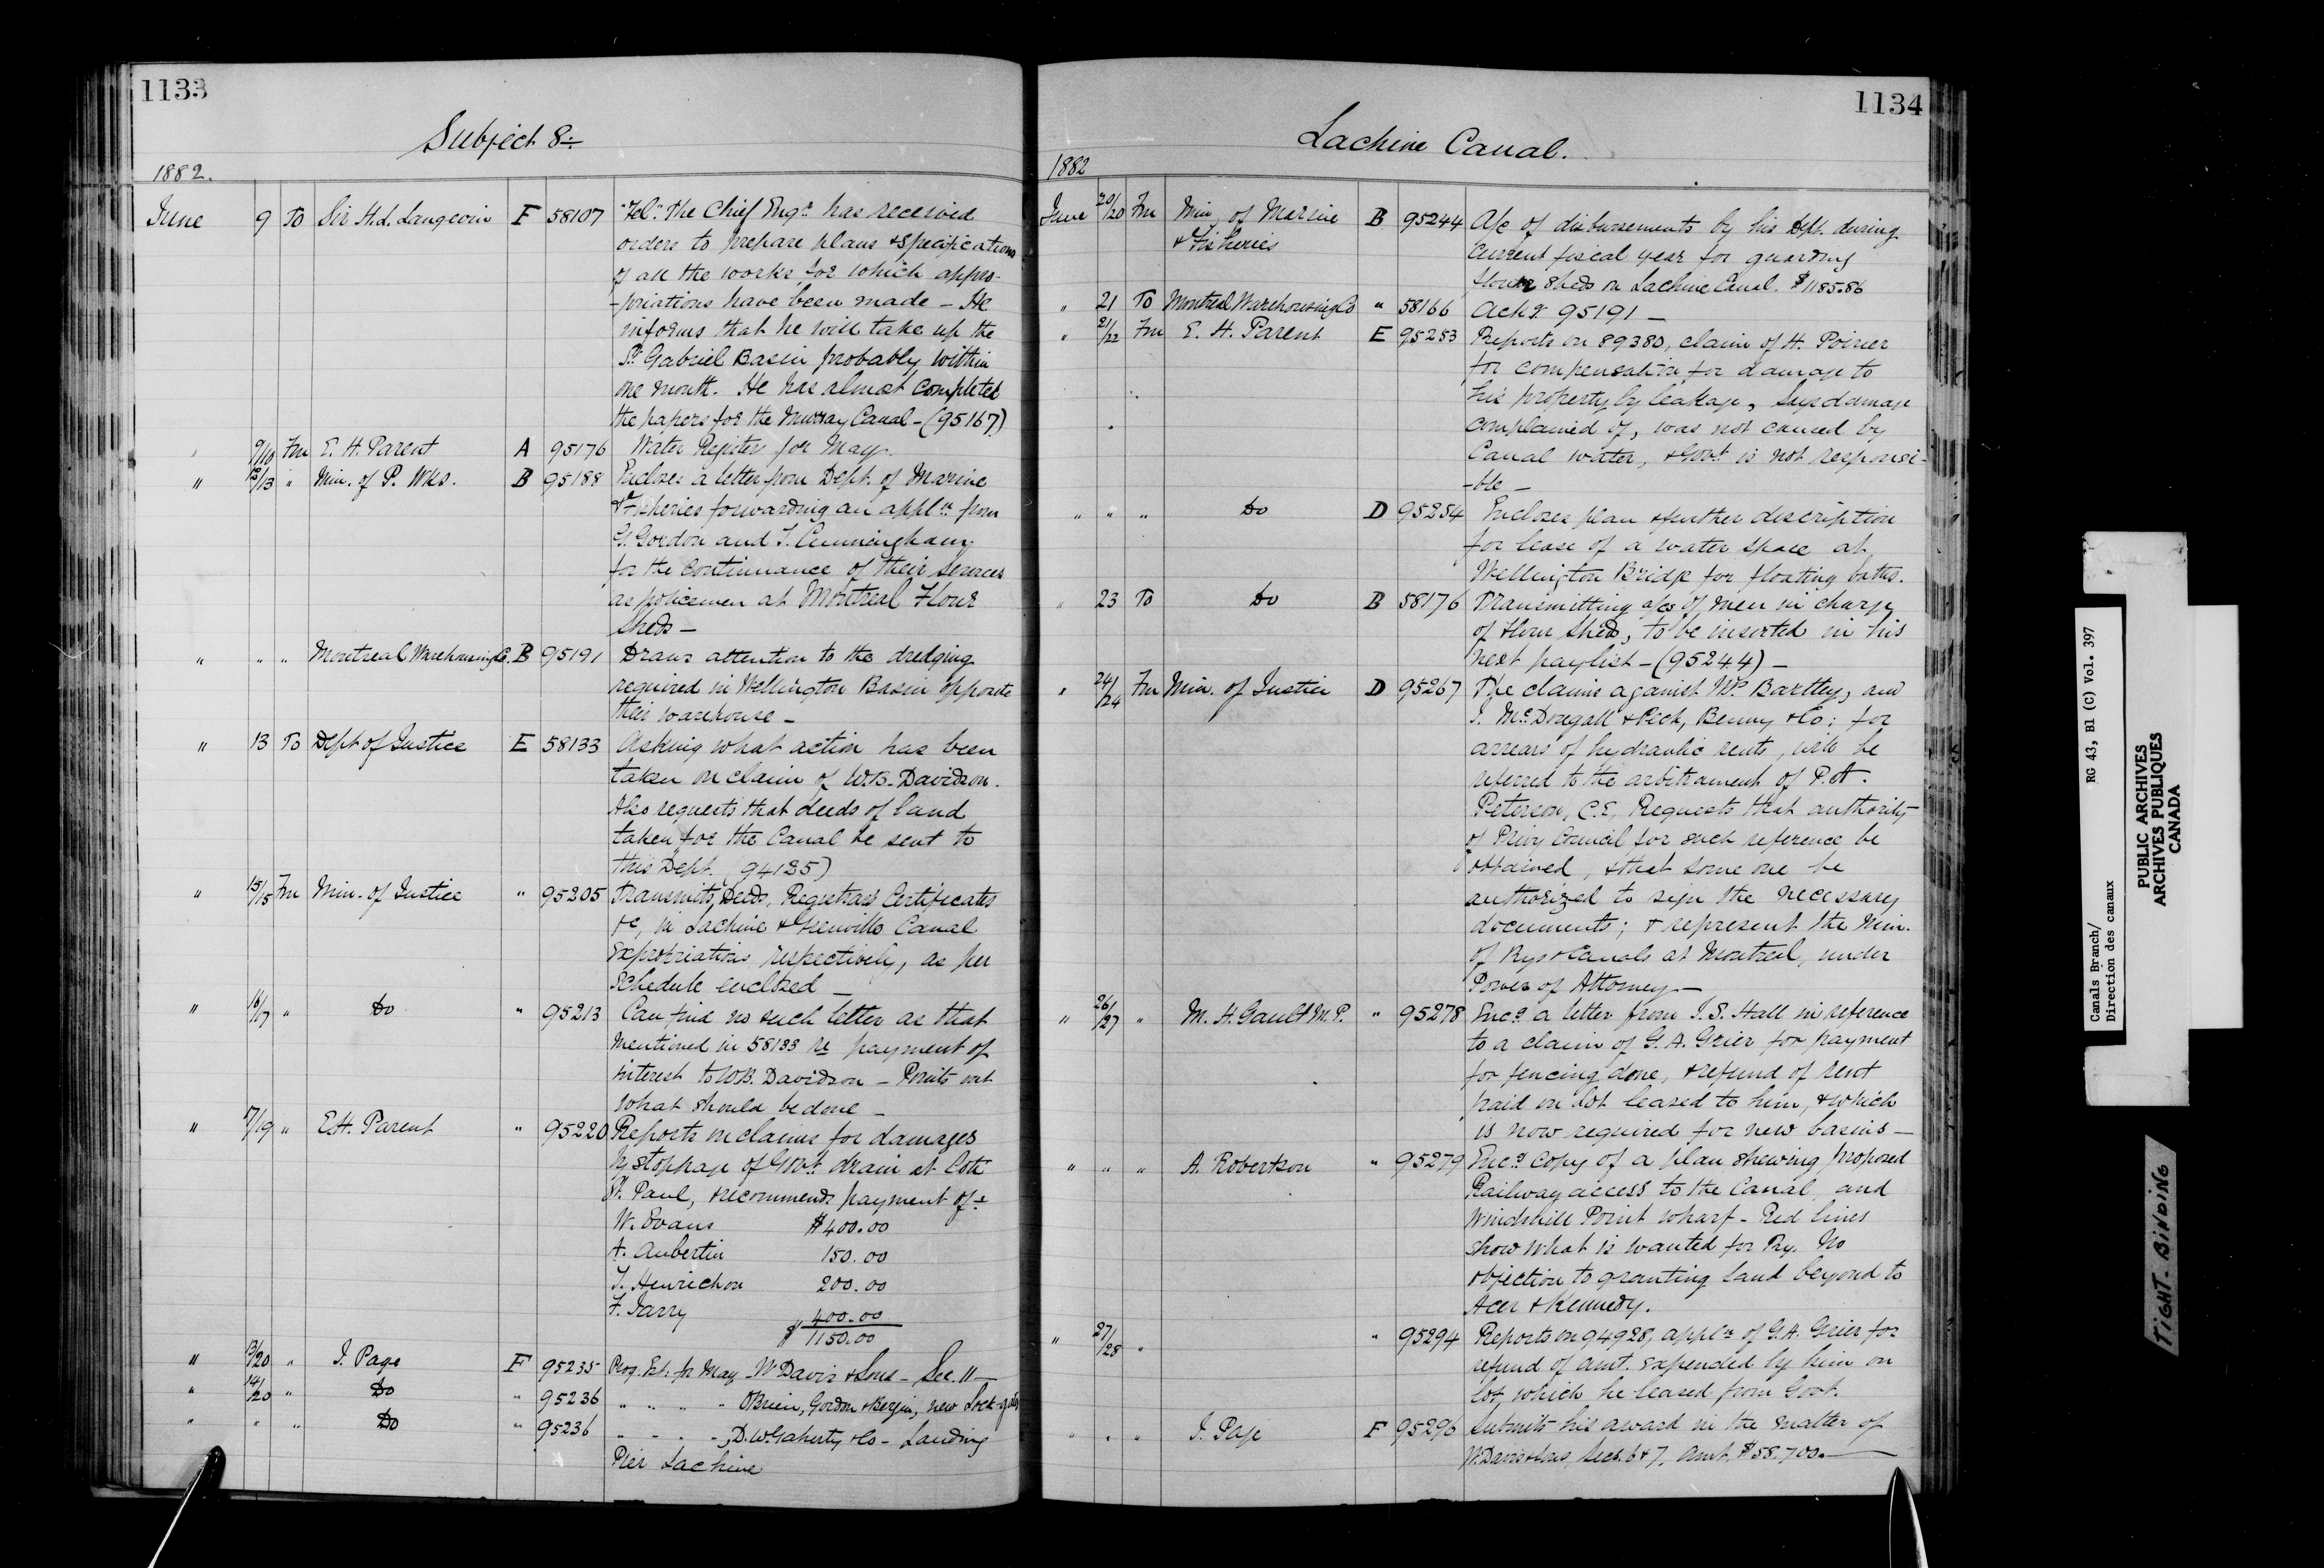 1133
Subject 8÷
1882.
June 9 To Sir H.L. Langevin F 58107 "Tel." The Chief Engr. has received
orders to prepare plans & specifications
of all the works for which appro-
-priations have been made – He
informs that he will take up the
St. Gabriel Basin probably within
one month. He has almost completed
the papers for the Murray Canal – (95167)
" 9/10 Fm E. H. Parent A 95176 Water Register for May.
" 12/13 " Min. of P. Wks. B 95188 Encloses a letter from Dept. of Marine
& Fisheries forwarding an appln. from
G. Gordon and T. Cunningham
for the continuance of their services
as policemen at Montreal Flour
Sheds –
" " " Montreal Warehousing Co. B 95191 Draws attention to the dredging
required in Wellington Basin opposite
their warehouse –
" 13 To Dept of Justice E 58133 Asking what action has been
taken on claim of W.B. Davidson.
Also requests that deeds of land
taken for the Canal be sent to
this Dept. (94135)
" 15/15 Fm Min. of Justice " 95205 Transmits Deeds, Registrar's Certificates
&c, in Lachine & Grenville Canal
Expropriations respectively, as per
Schedule enclosed –
" 16/17 " Do " 95213 Can find no such letter as that
mentioned in 58133 re payment of
interest to W.B. Davidson – Points out
what should be done –
" 17/19 " E.H. Parent " 95220 Reports on claims for damages
by stoppage of Govt. drain at Cote
St. Paul, & recommends payment of÷
W. Evans $400.00
A. Aubertin 150.00
T. Henrichon 200.00
F. Jarry 400.00
$1150.00
" 13/20 " J. Page F 95235 Prog. Est. for May – W Davis & Sons – Sec. 11 –
" 14/20 " Do " 95236 " " " - O'Brien, Gordon & Bergin, new Lock-gates
" " " Do " 95236 " - - - , D. W. Gaherty & Co – Landing
Pier Lachine
1134
Lachine Canal.
1882
June 20/20 Fm Min. of Marine B 95244 A/c of disbursements by his Dept. during
& Fisheries current fiscal year for guarding
flour sheds on Lachine Canal. $1185.86
" 21 To Montreal Warehousing Co " 58166 Ackg. 95191 –
" 21/22 Fm E. H. Parent E 95253 Reports on 89380, claim of H. Poirier
for compensation for damage to
his property by leakage, Says damage
complained of, was not caused by
Canal water, & Govt. is not responsi-
-ble –
" " " Do D 95254 Encloses plan & further description
for lease of a water space at
Wellington Bridge for floating baths.
" 23 To Do B 58176 Transmitting a/cs of men in charge
of flour sheds, to be inserted in his
next paylist – (95244) –
" 24/24 Fm Min. of Justice D 95267 The claims against Mr. Bartley, and
J. McDougall & Peck, Benny & Co; for
arrears of hydraulic rents, will be
referred to the arbitrament of P. A.
Peterson, C.E, Requests that authority
of Privy Council for such reference be
obtained, & that some one be
authorized to sign the necessary
documents; & represent the Min.
of Rys & Canals at Montreal, under
Power of Attorney –
" 26/27 " M. H. Gault M.P. " 95278 Encs. a letter from J. S. Hall in reference
to a claim of G. A. Grier for payment
for fencing done, & refund of rent
paid on lot leased to him, & which
is now required for new basins –
" " " A. Robertson " 95279 Encs. copy of a plan shewing proposed
Railway access to the Canal and
Windmill Point wharf – Red lines
show what is wanted for Ry. No
objection to granting land beyond to
Acer & Kennedy.
" 27/28 " " 95294 Reports on 94928, appln. of G.A. Grier for
refund of amt. expended by him on
lot, which he leased from Govt.
" " " J. Page F 95296 Submits his award in the matter of
W. Davis & Sons, Secs. 6 & 7, Amt. $58.700. –
Canals Branch/ RG 43, B1 (C) Vol. 397
Direction des canaux
PUBLIC ARCHIVES
ARCHIVES PUBLIQUES
CANADA
TIGHT. BINDING